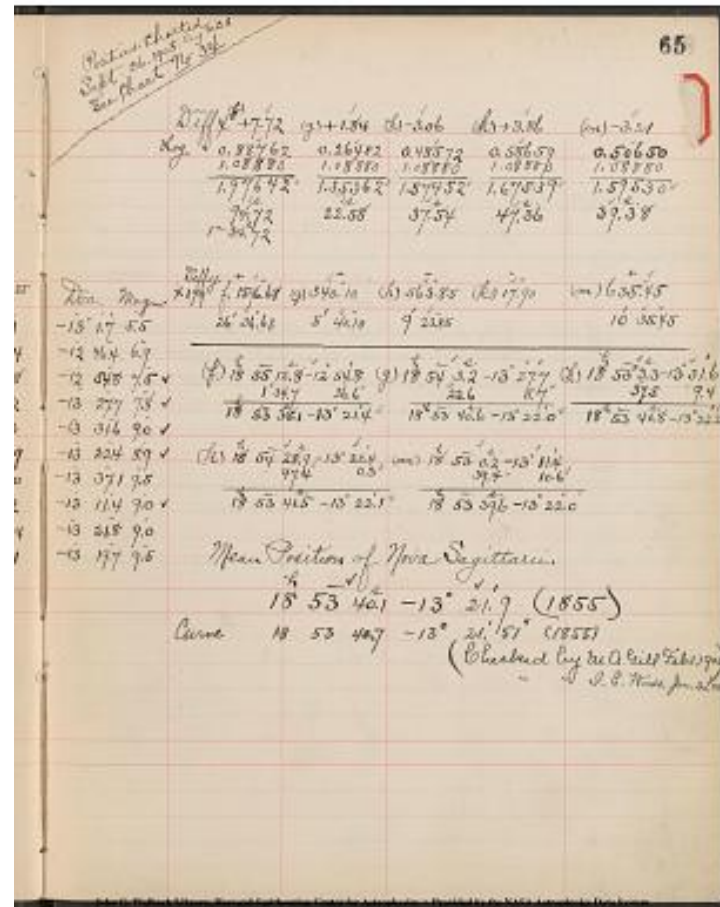 Position Charted
Sept. 26, 1905
See Chart No 34
65
Diff x +7.72 (g) +1.84 (h) -3.06 (k) +3.86 (m) -3.21
Log. 0.88762 0.26482 0.48572 0.58659 0.50650
1.08880 1.08880 1.08880 1.08880 1.08880
1.97642 1.35362 1.57452 1.67539 1.59530
94.72 22.58 37.54 47.36 39.38
1 34.72
Diff y (g) 340.10 (h) 563.85 (k) 17.90 (m) 635.45
26' 36.68 5' 40.10 9' 23.85 10 35.45
Dec. Magn.
-13 1.7 5.5
-12 46.4 6.9
-12 54.8 7.5 ✓
-13 27.7 7.8 ✓
-13 31.6 9.0 ✓
-13 22.4 8.9 ✓
-13 37.1 9.5
-13 11.4 9.0 ✓
-13 21.8 9.0
-13 19.7 9.5
(f) 18 55 12.8 -12 54.8 (g) 18 54 3.2 -13 27.7 (h) 18 53 3.3 -13 31.6
1 34.7 26.6 22.6 5.7 37.5 9.4
18 53 38.1 -13 21.4 18 53 40.6 -13 22.0 18 53 40.8 -13 22.2
(k) 18 54 28.9 -13 22.4 (m) 18 53 0.2 -13 11.4
47.4 0.3 39.4 10.6
18 53 41.5 -13 22.1 18 53 39.6 -13 22.0
Mean Position of Nova Sagittarii
18h 53m 40.1 -13° 21.9 (1855)
Curve 18 53 40.7 -13° 21' 51" (1855)
(Checked by M A Gill Feb.
" " I. E. Woods Jan.